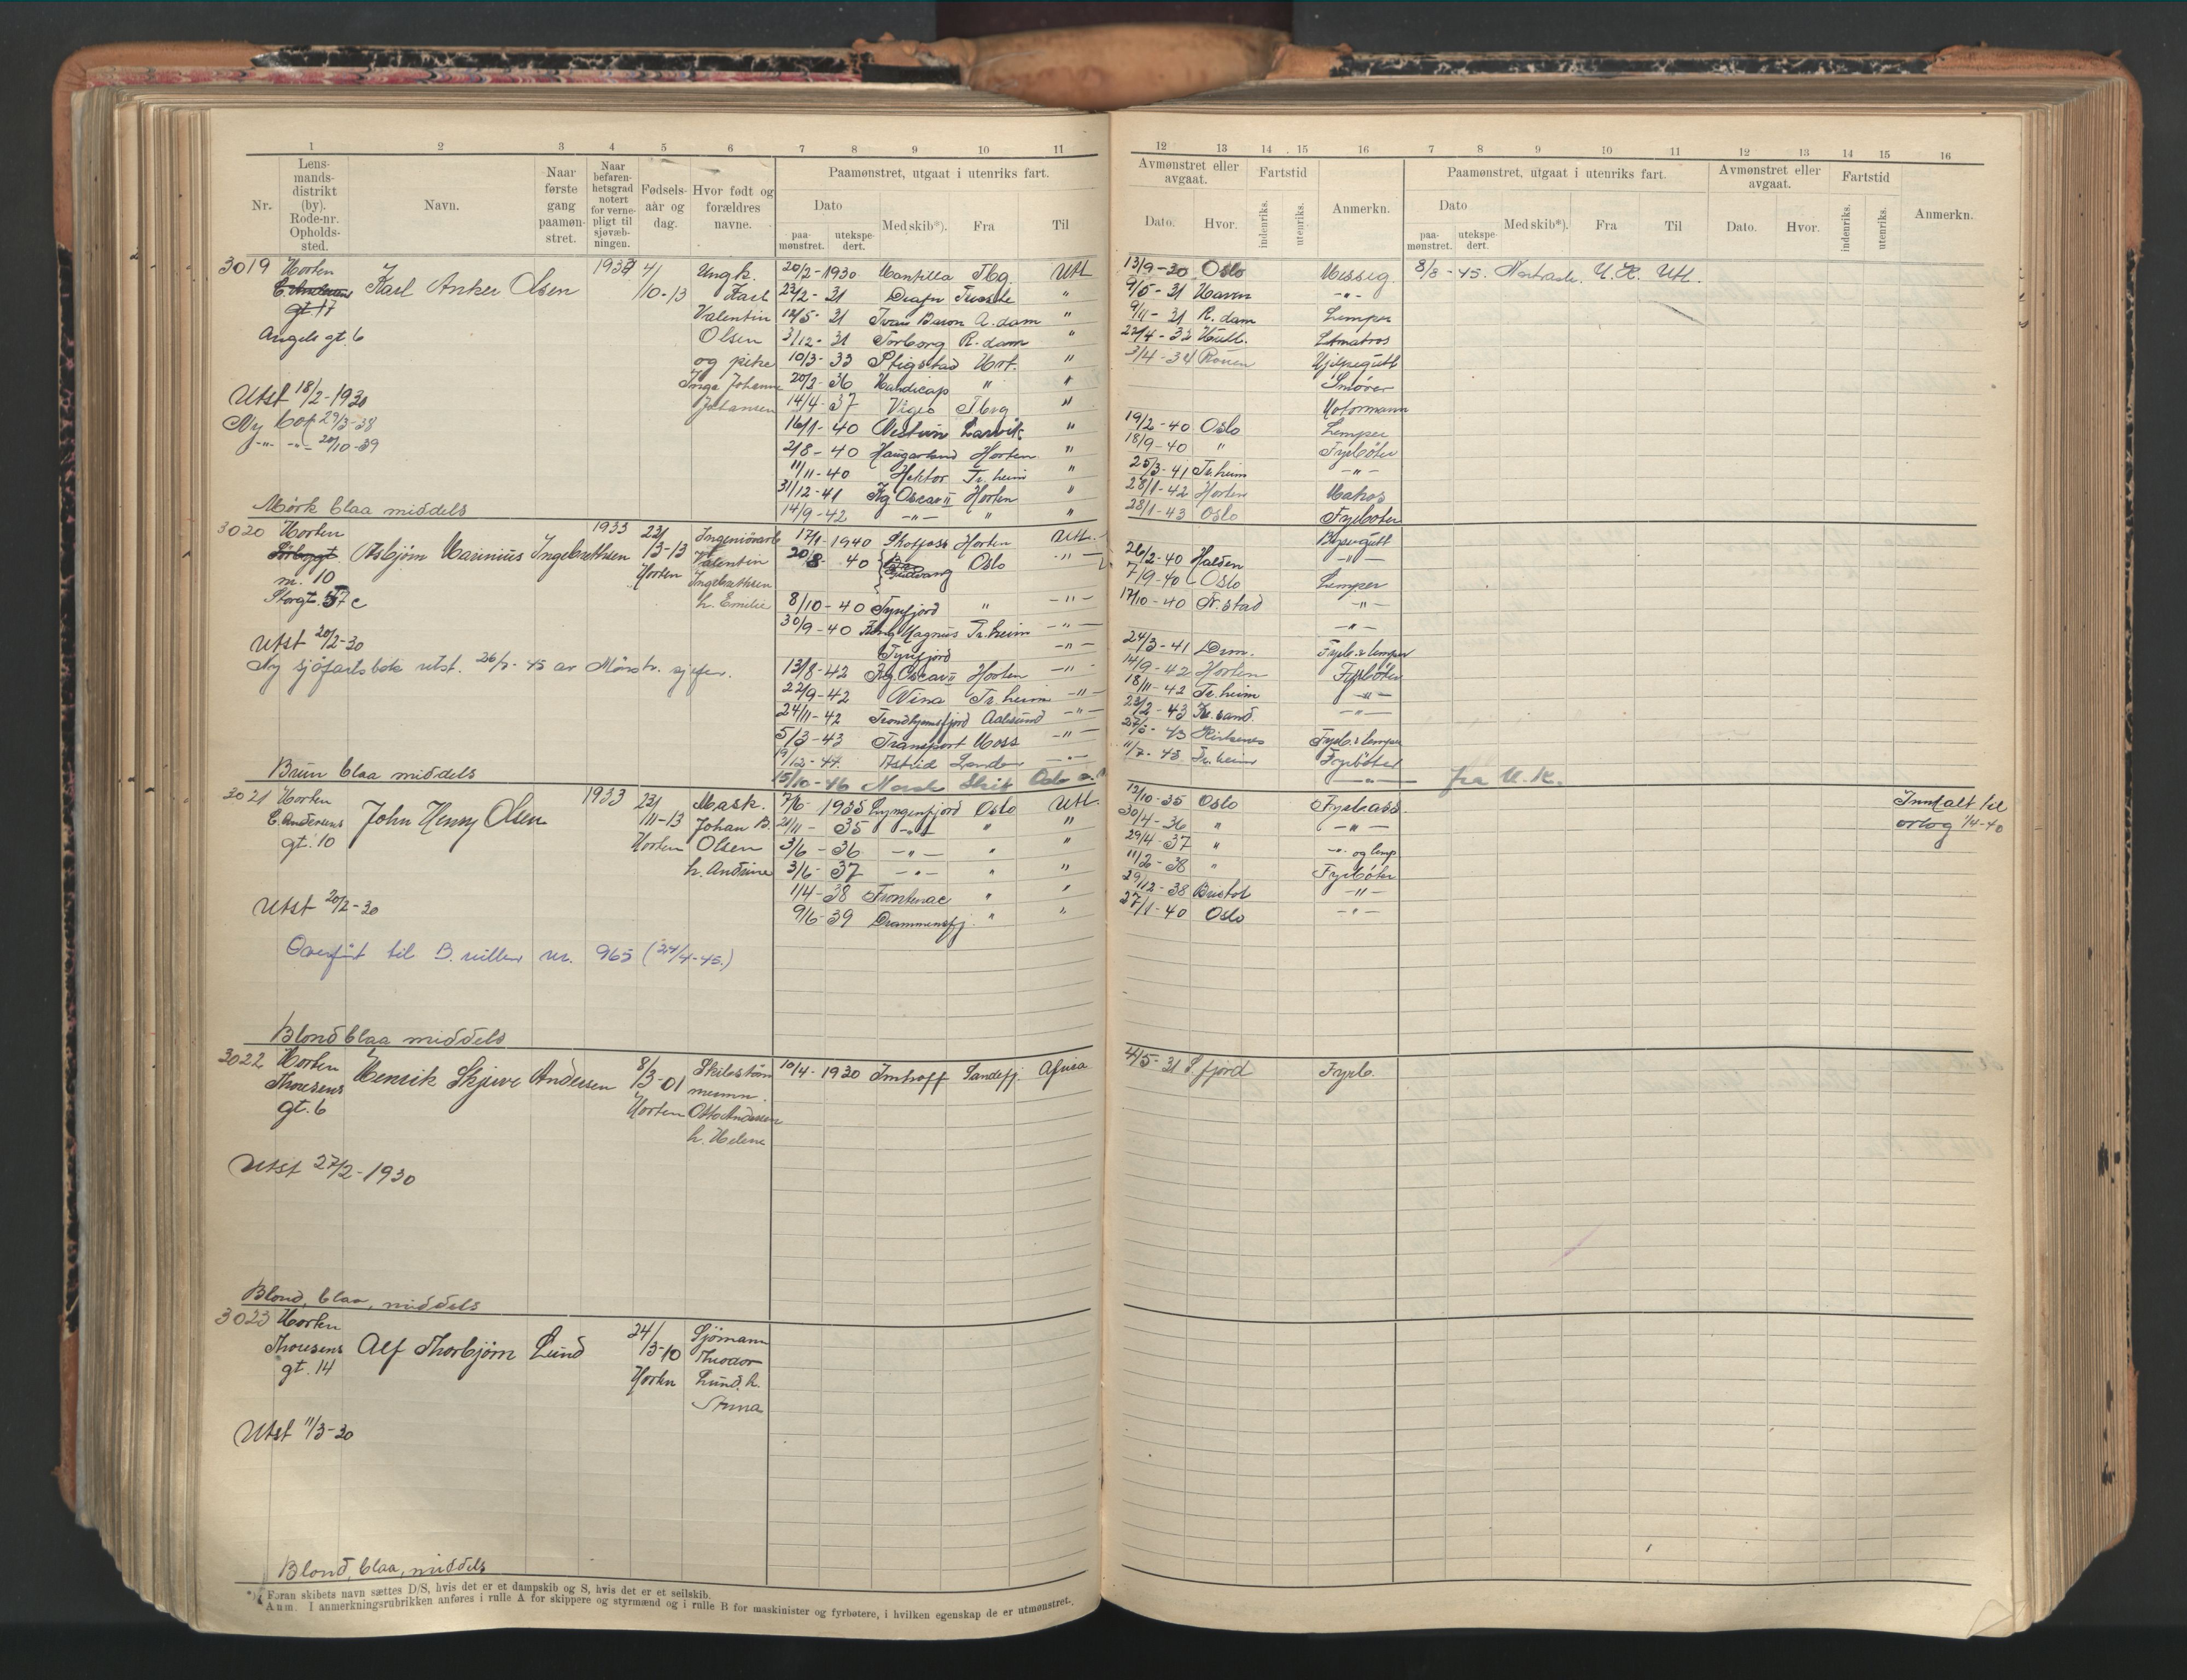 1 2 3 4 5 6 7 8 9 10 11
Nr. Lensmandsdistrikt (by). Rode-nr. Opholdssted. Navn. Naar første gang paamønstret. Naar befarenhetsgrad notert for vernepligt til sjøvæbningen. Fødselsaar og dag. Hvor født og forældres navne. Paamønstret, utgaat i utenriks fart.
Dato Med skib*). Fra Til
paamønstret. utekspedert.
3019 Horten Karl Anker Olsen 4/10-13 Ungk. 20/2-1930 Mantilla Tbg. Utl
gt. 17 Karl 23/2-31
Valentin 12/5-31 Ivar Baron A.dam "
Angels gt. 6 Olsen 3/12-31 Torborg R.dam "
og pike 10/3-33 Stigstad Hort. "
Utst 18/2-1930 Inga Johanne 20/2-36 Handicap " "
Johansen 14/4-37 Vigeo Tbrg "
Ny bok 29/3-38 16/1-40 Larvik "
-"- -"- 20/10-39 2/8-40 Haugarland Horten "
11/11-40 Hektor Tr.heim "
31/12-41 Kg Oscar II Horten "
Mørk blaa middels 14/9-42 -"- " "
3020 Horten Asbjørn Marinius Ingebrethsen 1933 23/3-13 Horten 17/1-1940 Skotfoss Horten Utl.
m. 10 Valentin Ingebrethsen 20/8-40 Oslo -"-
Storgt. 37 c h. Emilie 8/10-40 Tyrifjord " -"-
30/9-40 Kong Magnus Tr.heim -"-
Utst 20/2-30 Tyrifjord -"-
Ny sjøfartsbok utst. 26/2-45 av Mønstr. sjefen. 13/8-42 Kg Oscar II Horten -"-
22/9-42 Nina Tr.heim -"-
24/11-42 Trondhjemsfjord Aalesund -"-
5/3-43 Transport Moss -"-
19/12-44 Astrid -"-
Brun blaa middels 15/10-46 Norsk Skip Oslo
3021 Horten John Henry Olsen 1933 23/11-13 Mask. 7/6-1935 Lyngenfjord Oslo Utl.
C. Andersens Johan B. 21/11-35 -"- " "
gt. 10 Horten Olsen 3/6-36 -"- " "
h. Andrine 3/6-37 -"- " "
1/4-38 Frontenac " "
Utst 20/2-30 9/6-39 Drammensfj. " "
Overført til B. rullen nr. 965 (24/4-45.)
Blond blaa middels
3022 Horten Henrik Skjeve Andersen 8/3-01 10/4-1930 Imhoff Sandefj. Africa
Thoresens
gt. 6 Horten Otto Andersen
h. Helene
Utst 27/2-1930
Blond, blaa, middels
3023 Horten Alf Thorbjørn Lund 24/3-10 Sjømann
Thoresens Theodor
gt. 14 Horten Lund, h.
Anna
Utst 11/3-30
Blond, blaa, middels
*) Foran skibets navn sættes D/S, hvis det er et dampskib og S, hvis det er et seilskib.
Anm. I anmerkningsrubrikken anføres i rulle A for skippere og styrmænd og i rulle B for maskinister og fyrbøtere, i hvilken egenskap de er utmønstret.
12 13 14 15 16 7 8 9 10 11 12 13 14 15 16
Avmønstret eller avgaat. Fartstid Anmerkn. Paamønstret, utgaat i utenriks fart. Avmønstret eller avgaat. Fartstid Anmerkn.
Dato. Hvor. indenriks. utenriks. Dato Med skib*). Fra Til Dato. Hvor. indenriks. utenriks.
paamønstret. utekspedert.
13/9-30 Oslo Messg. 8/8-45. Nortrash. U.K. Utl.
9/5-31 -"-
9/11-31 R.dam Lemper
22/4-32 Hull. Letmatros
3/4-34 Rouen Hjelpegutt
Smører
Motormann
19/2-40 Oslo Lemper
18/9-40 " Fyrbøter
25/3-41 Tr.heim -"-
28/1-42 Horten Matros
28/1-43 Oslo Fyrbøter
Byssegutt
26/2-40 Halden -"-
7/9-40 Oslo Lemper
17/10-40 Fr.stad -"-
-"-
24/3-41 Drm. Fyrb. & lemper
14/9-42 Horten Fyrbøter
18/11-42 Tr.heim -"-
23/2-43 Kr.sand. -"-
27/5-43 Kirkenes Fyrb. & lemper
11/7-45. Tr.heim Fyrbøter
-"- fra U.K.
12/10-35 Oslo Fyrb.ass. Innkalt til
30/4-36 " -"- orlog 1/4-40
29/4-37 " -"- og lemp
11/2-38 " Fyrbøter
29/12-38 Bristol -"-
27/1-40 Oslo -"-
4/5-31 S.fjord Fyrb.